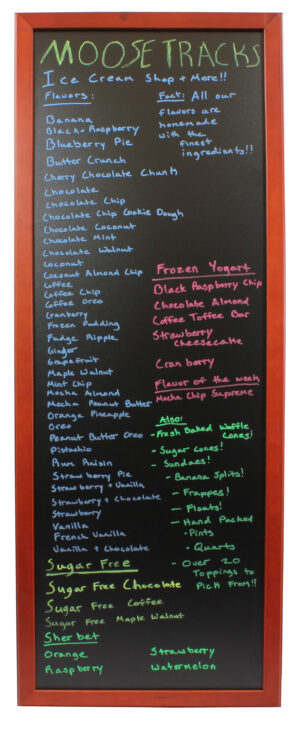 MOOSE TRACKS
Ice Cream Shop + More!!
Flavors:
Banana
Black Raspberry
Blueberry Pie
Butter Crunch
Cherry Chocolate Chunk
Chocolate
Chocolate Chip
Chocolate Chip Cookie Dough
Chocolate Coconut
Chocolate Mint
Chocolate Walnut
Coconut
Coconut Almond Chip
Coffee
Coffee Chip
Coffee Oreo
Cranberry
Frozen Pudding
Fudge Ripple
Ginger
Grapefruit
Maple Walnut
Mint Chip
Mocha Almond
Mocha Peanut Butter
Orange Pineapple
Oreo
Peanut Butter Oreo
Pistachio
Rum Raisin
Strawberry Pie
Strawberry + Vanilla
Strawberry + Chocolate
Strawberry
Vanilla
French Vanilla
Vanilla + Chocolate
Sugar Free
Sugar Free Chocolate
Sugar Free Coffee
Sugar Free Maple Walnut
Sherbet
Orange
Raspberry
Strawberry
Watermelon
Fact: All our
flavors are
homemade
with the
finest
ingredients!!
Frozen Yogart
Black Raspberry Chip
Chocolate Almond
Coffee Toffee Bar
Strawberry
Cheesecake
Cranberry
Flavor of the week
Mocha Chip Supreme
Also:
- Fresh Baked Waffle
Cones!
- Sugar Cones!
- Sundaes!
- Banana Splits!
- Frappes!
- Floats!
- Hand Packed
- Pints
- Quarts
- Over 20
Toppings to
Pick From!!